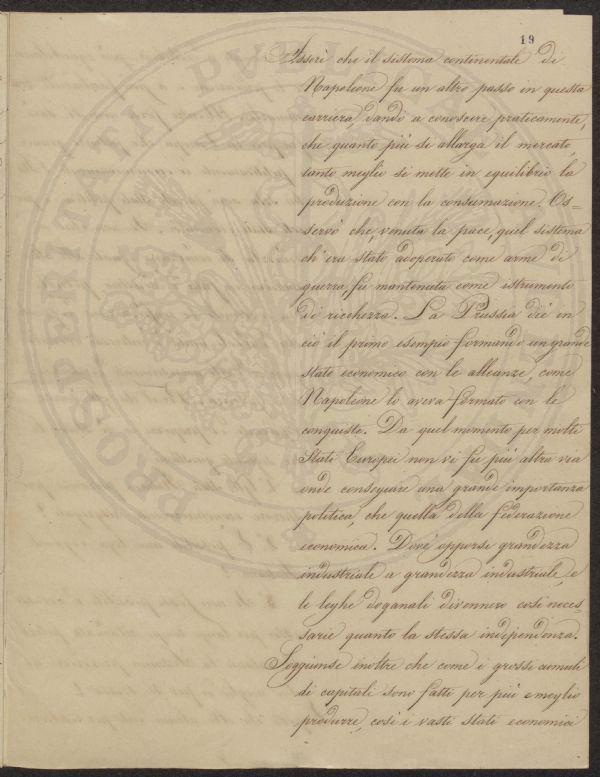 19
Asserì che il sistema continentale di
Napoleone fu un altro passo in questa
carriera, dando a conoscere praticamente,
che quanto più si allarga il mercato,
tanto meglio si mette in equilibrio la
produzione con la consumazione. Os=
servò che, venuta la pace, quel sistema
ch'era stato adoperato come arme di
guerra, fu mantenuto come istrumento
di ricchezza. La Prussia diè in
ciò il primo esempio formando un grande
stato economico con le alleanze, come
Napoleone lo aveva formato con le
conquiste. Da quel momento per molti
Stati Europei non vi fu più altra via
onde conseguire una grande importanza
politica, che quella della federazione
economica. Dovè opporsi grandezza
industriale a grandezza industriale, e
le leghe doganali divennero così neces=
sarie quanto la stessa independenza.
Soggiunse inoltre che come i grossi cumuli
di capitali sono fatti per più e meglio
produrre, così i vasti stati economici
PROSPERITATI PUBLICAE